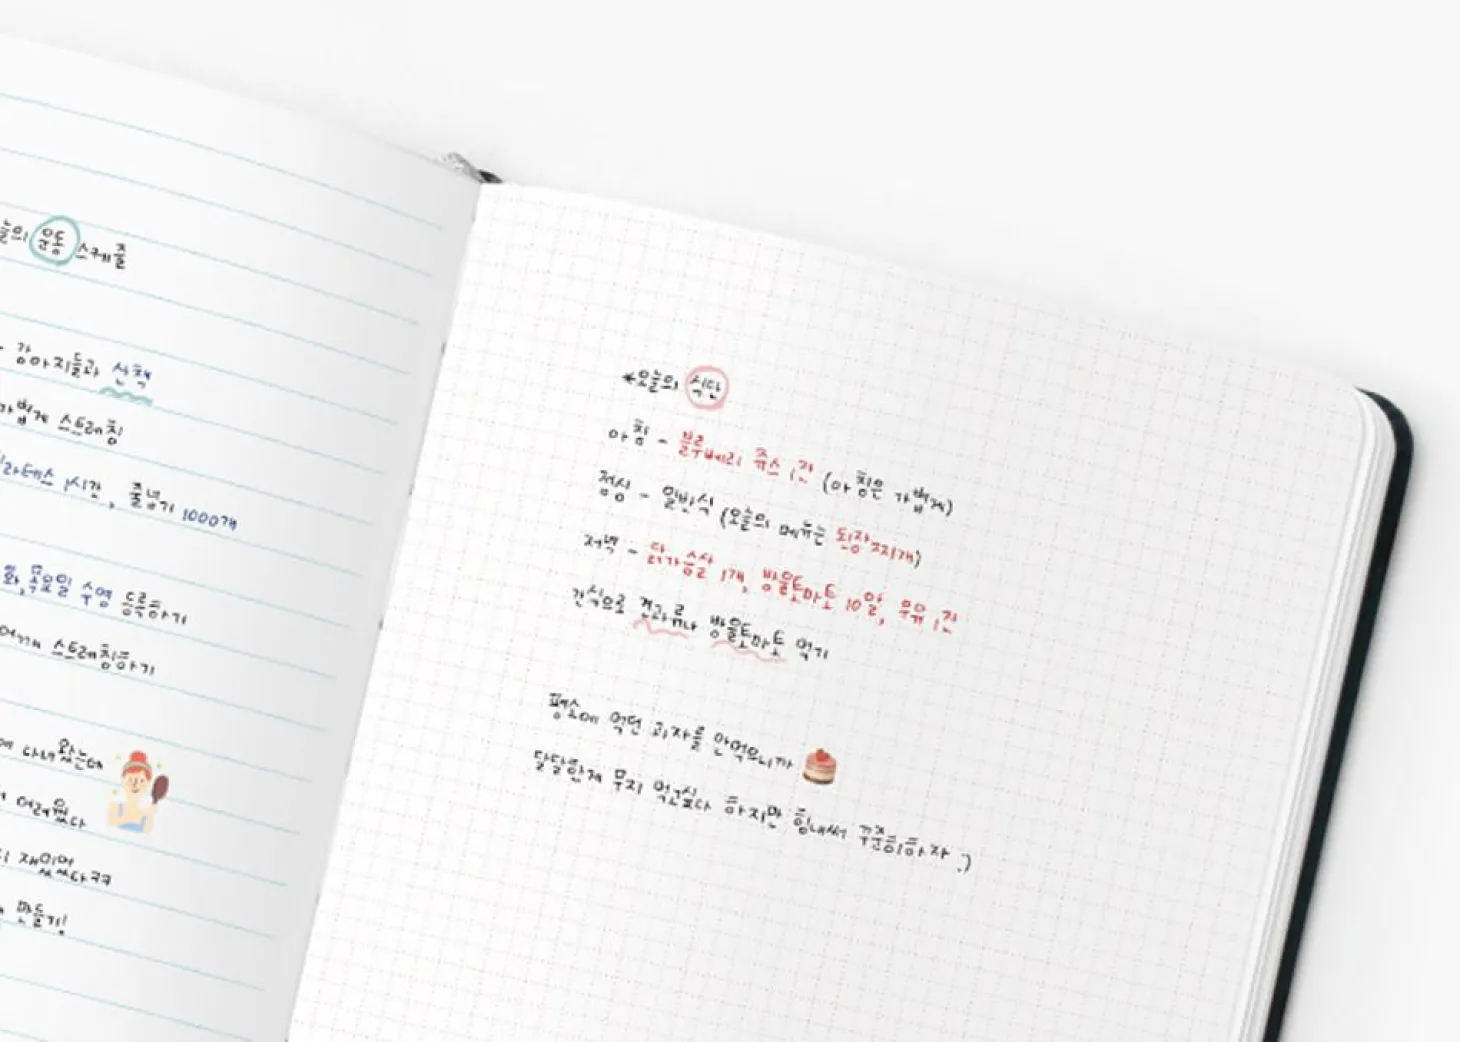 늘의 운동 스케줄
- 강아지들과 산책
가볍게 스트레칭
라테스 1시간, 줄넘기 1000개
화,목요일 수영 등록하기
어깨 스트레칭하기
에 다녀왔는데
어려웠다
재밌었다ㅋㅋ
만들기!
*오늘의 식단
아침 - 블루베리 쥬스 1잔 (아침은 가볍게)
점심 - 일반식 (오늘의 메뉴는 된장찌개)
저녁 - 닭가슴살 1개, 방울토마토 10알, 우유 1잔
간식으로 견과류나 방울토마토 먹기
평소에 먹던 과자를 안먹으니까
달달한게 무지 먹고싶다 하지만 힘내서 꾸준히하자 :)